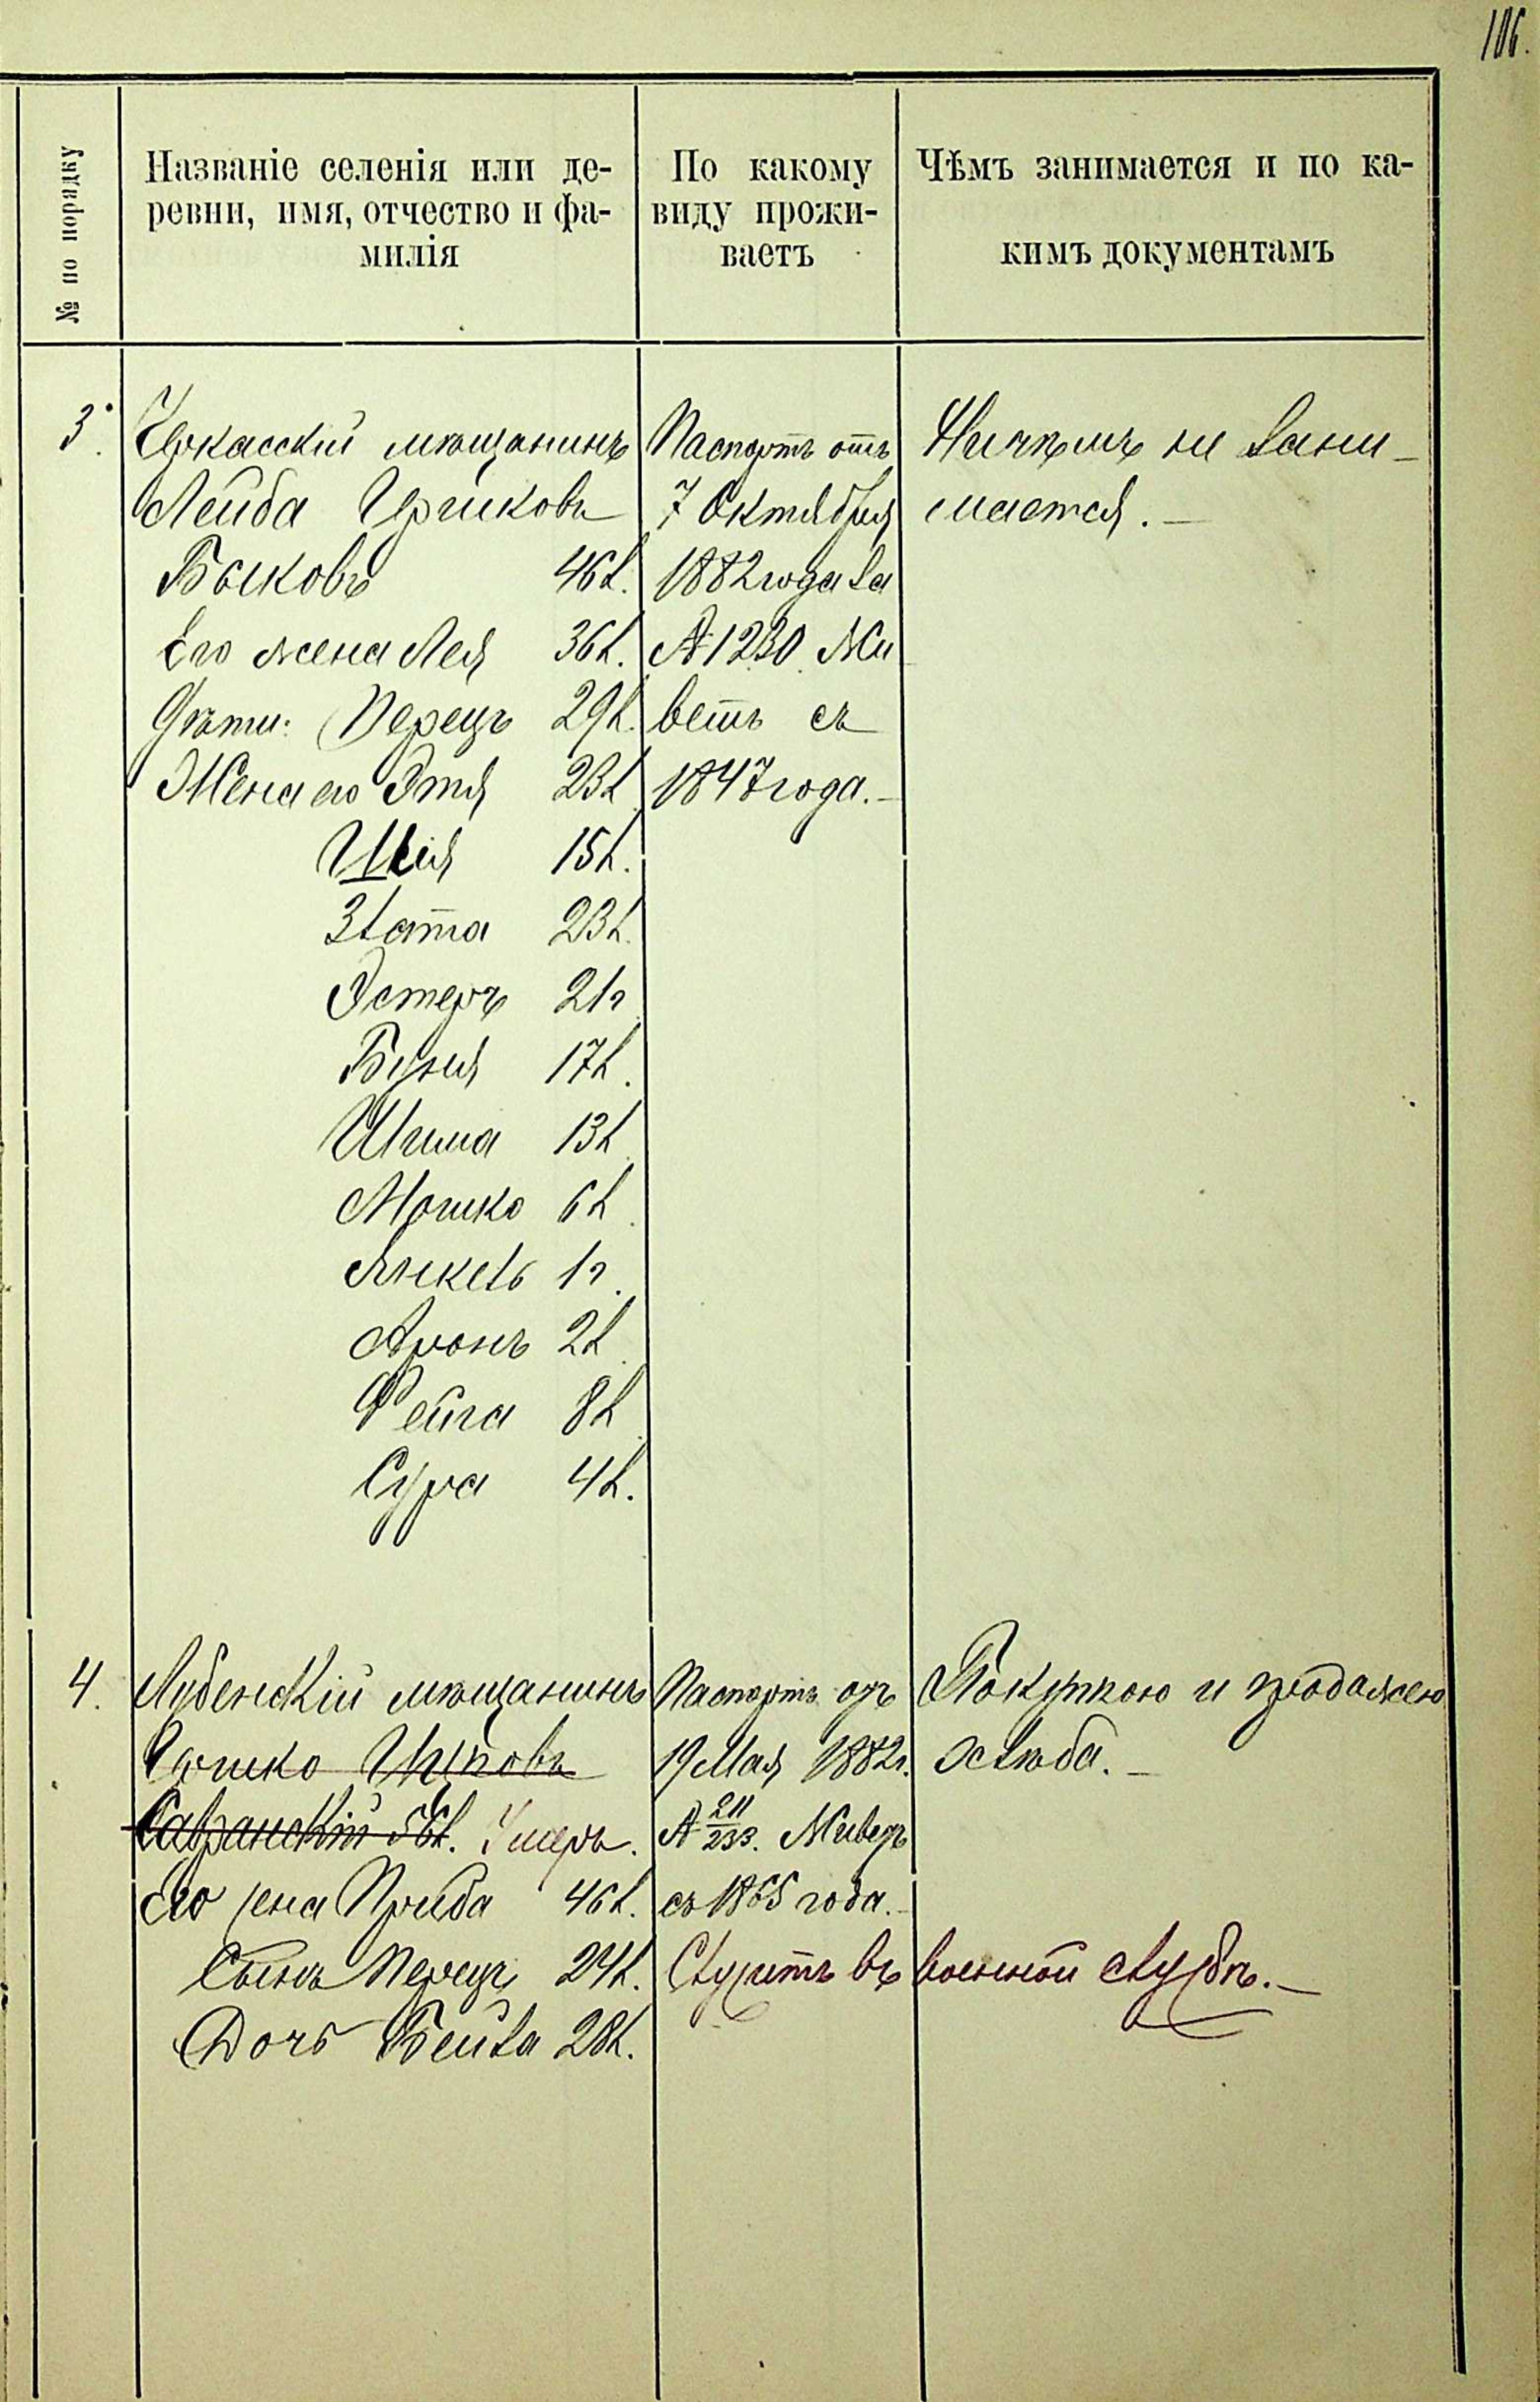 106.
№ по порядку
Названіе селенія или де-
ревни, имя, отчество и фа-
милія
По какому
виду прожи-
ваетъ
Чѣмъ занимается и по ка-
кимъ документамъ
3.
Черкасскій мѣщанинъ
Лейба Иршковъ
Быковъ 46 л.
Его жена Лея 36 л.
Дѣти: Перецъ 29 л.
Жена его Этя 23 л.
Шія 15 л.
Злата 23 л.
Эстеръ 21 г.
Буня 17 л.
Шима 13 л.
Мошко 6 л.
Янкель 1 г.
Аронъ 2 л.
Фейга 8 л.
Сура 4 л.
Паспортъ отъ
7 Октября
1882 года за
№ 1230 Жи
ветъ съ
1847 года.-
Ничѣмъ не зани-
мается.-
4.
Лубенскій мѣщанинъ
Ицковъ
Савранскій 56 л. Умеръ.
Его жена Приба 46 л.
Сынъ Перецъ 24 л.
Дочь Бейла 28 л.
Паспортъ отъ
19 Мая 1882 г.
№ 211/233. Живетъ
съ 1865 года.-
Служитъ въ военной службѣ.-
Покупкою и продажею
хлѣба.-